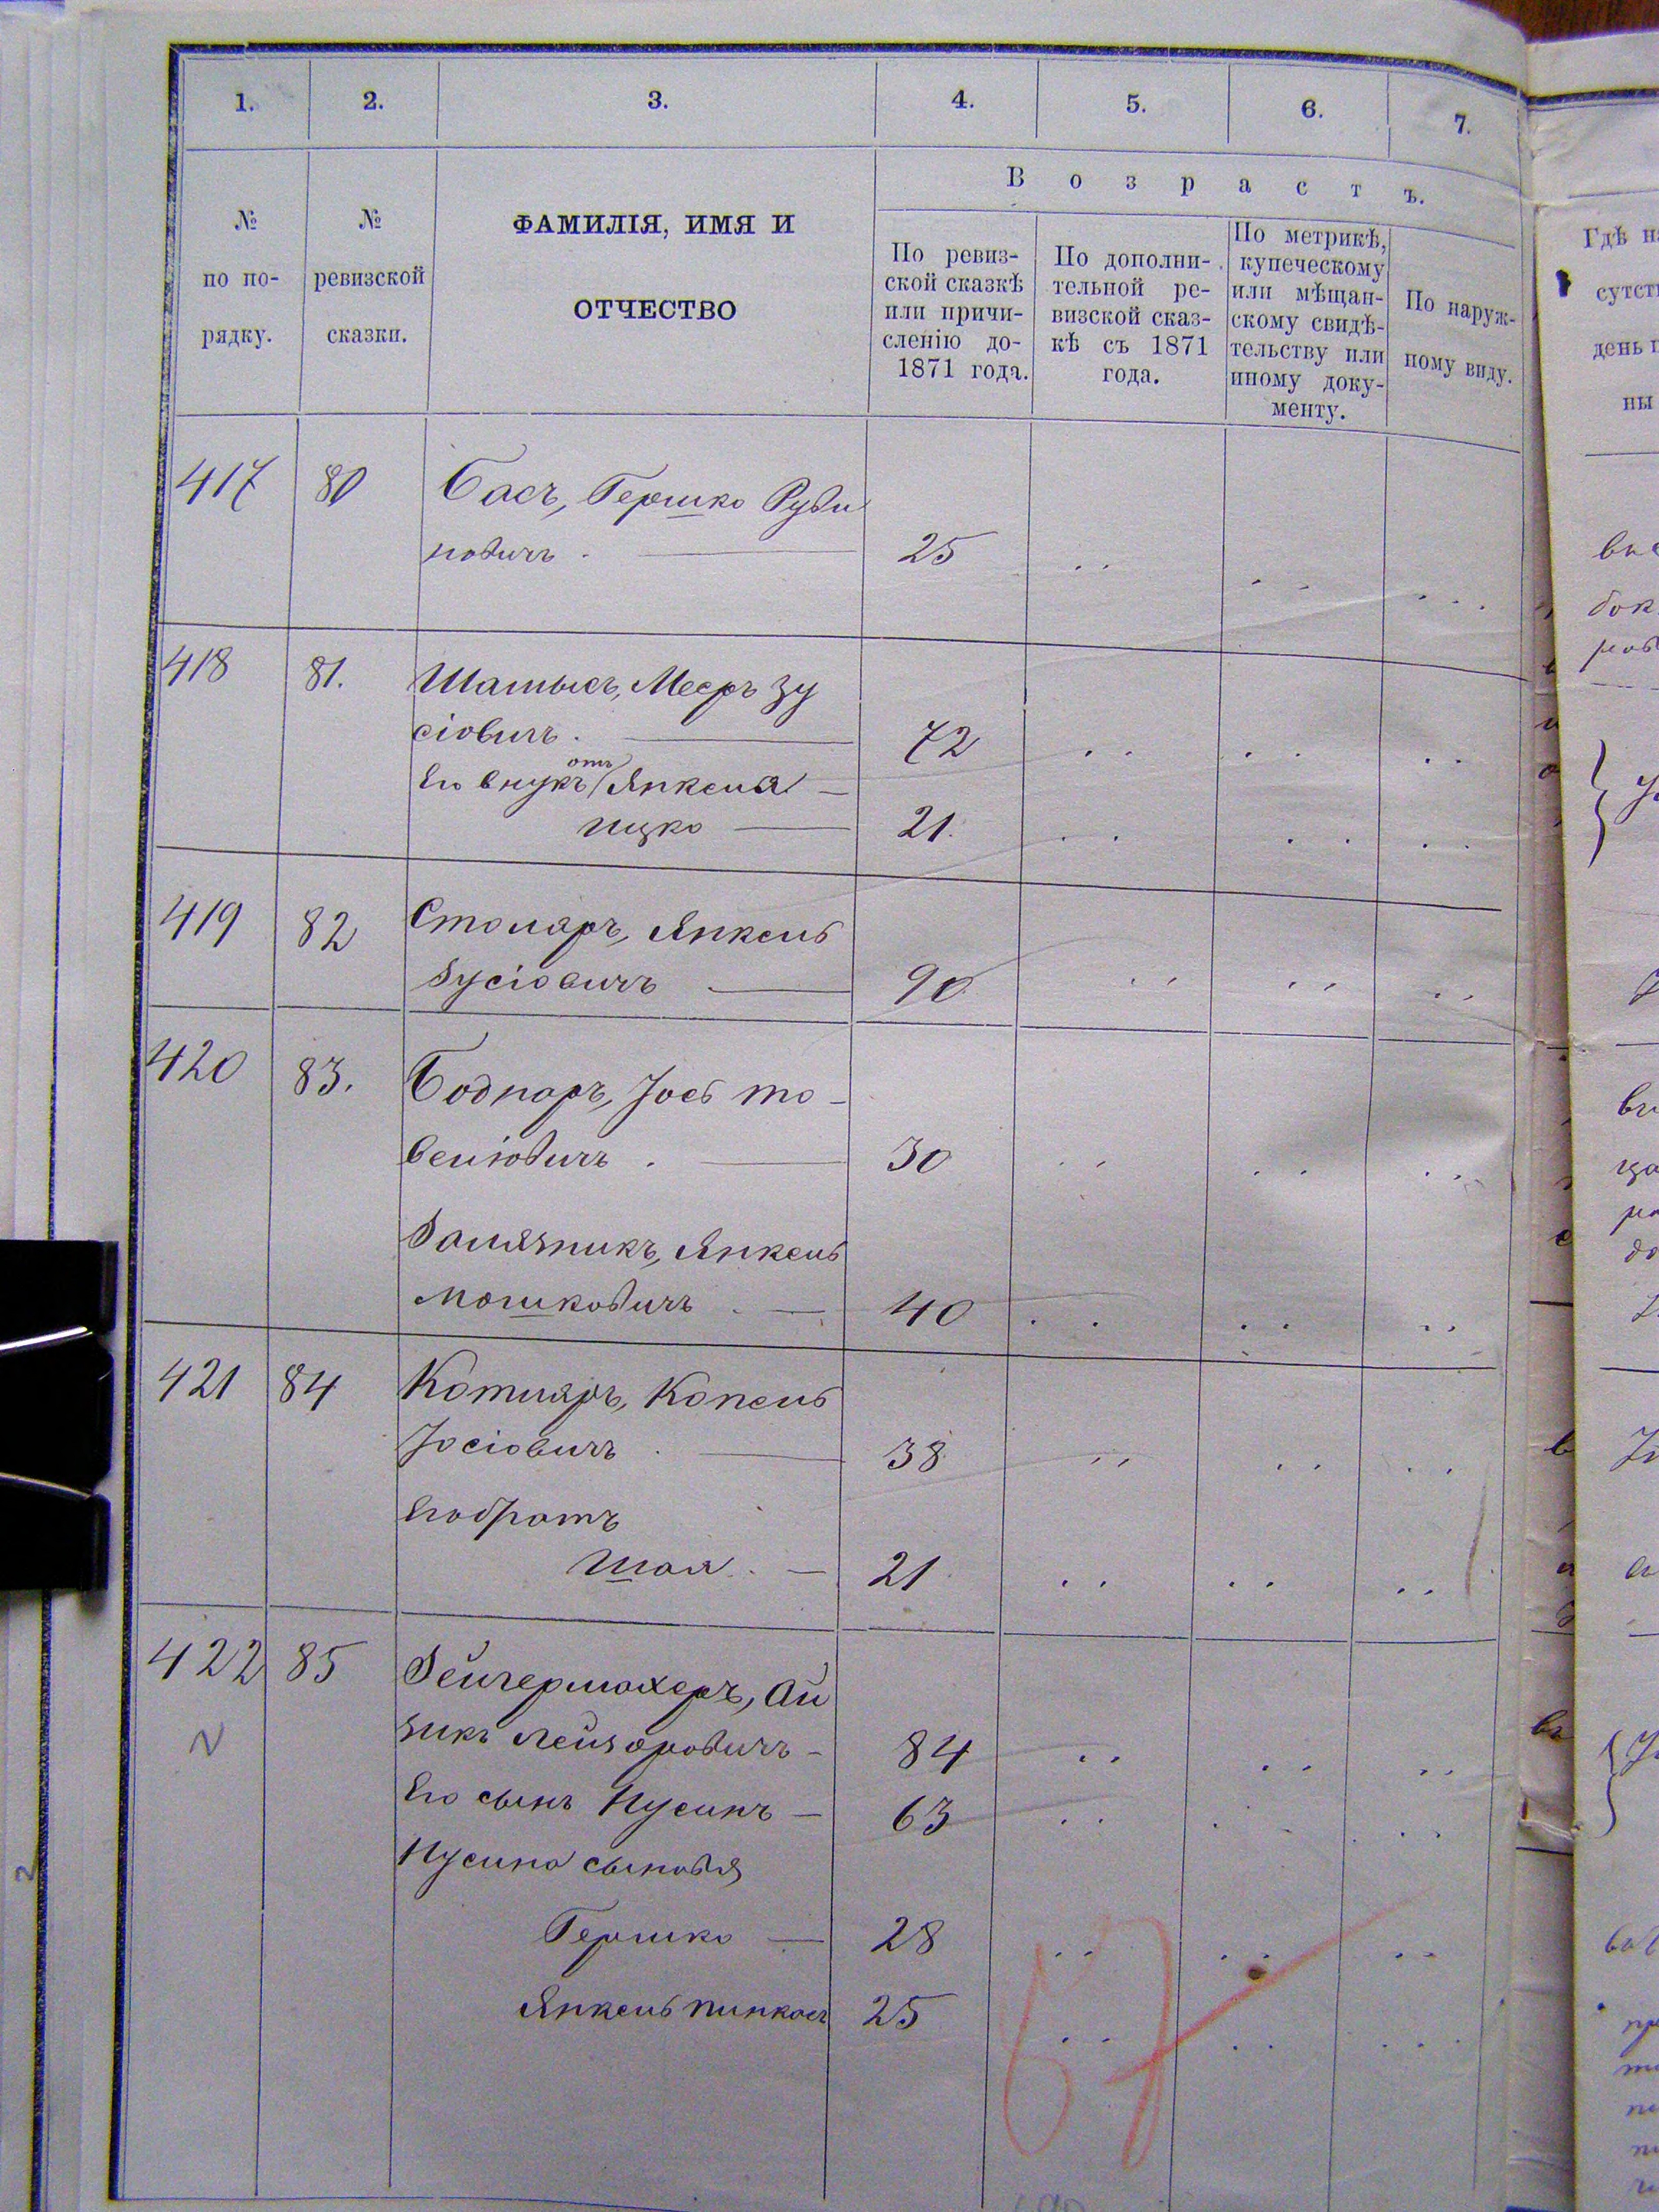 1. 2. 3. 4. 5. 6. 7.
№ по по-рядку.
№ ревизской сказки.
ФАМИЛІЯ, ИМЯ И
ОТЧЕСТВО
Возрастъ.
По ревиз-
ской сказкѣ
или причи-
сленію до
1871 года.
По дополни-
тельной ре-
визской сказ-
кѣ съ 1871
года.
По метрикѣ,
купеческому
или мѣщан-
скому свидѣ-
тельству или
иному доку-
менту.
По наруж-
ному виду.
417 80 Басъ, Гершко Руви
новичъ. 25
418 81. Шамысъ, Мееръ Зу
сіовичъ. 72
отъ
Его внукъ Янкеля
Ицко 21.
419 82 Столяръ, Янкель
Зусіовичъ 90
420 83. Боднаръ, Іось То-
веліовичъ. 30
Замячникъ, Янкель
Мошковичъ. 40
421 84 Котляръ, Копель
Іосіовичъ. 38
Его братъ
Шая. 21
422 85 Зейгермахеръ, Ай
зикъ Лейзоровичъ - 84
Его сынъ Нусинъ - 63
Нусина сыновья
Гершко 28
Янкель Пинкасъ 25
67